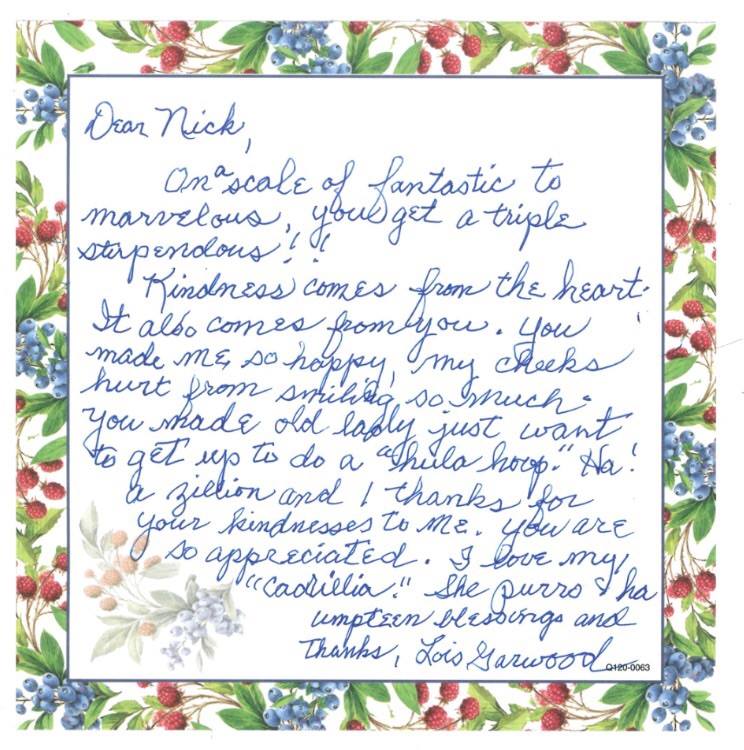 Dear Nick,
On a scale of fantastic to
marvelous, you get a triple
stupendous!!
Kindness comes from the heart.
It also comes from you. You
made me so happy, my cheeks
hurt from smiling so much.
You made old lady just want
to get up to do a "hula hoop." Ha!
a zillion and 1 thanks for
your kindnesses to me. You are
so appreciated. I love my
"Cadillia." She purrs & ha
umpteen blessings and
Thanks, Lois Garwood
Q120-0063